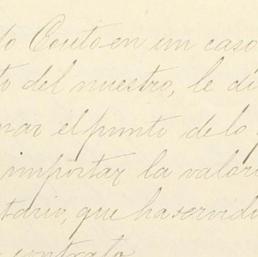 do Couto en un caso
to del nuestro, le di
nar el punto de lo
importar la valori
tario, que ha servido
contrato